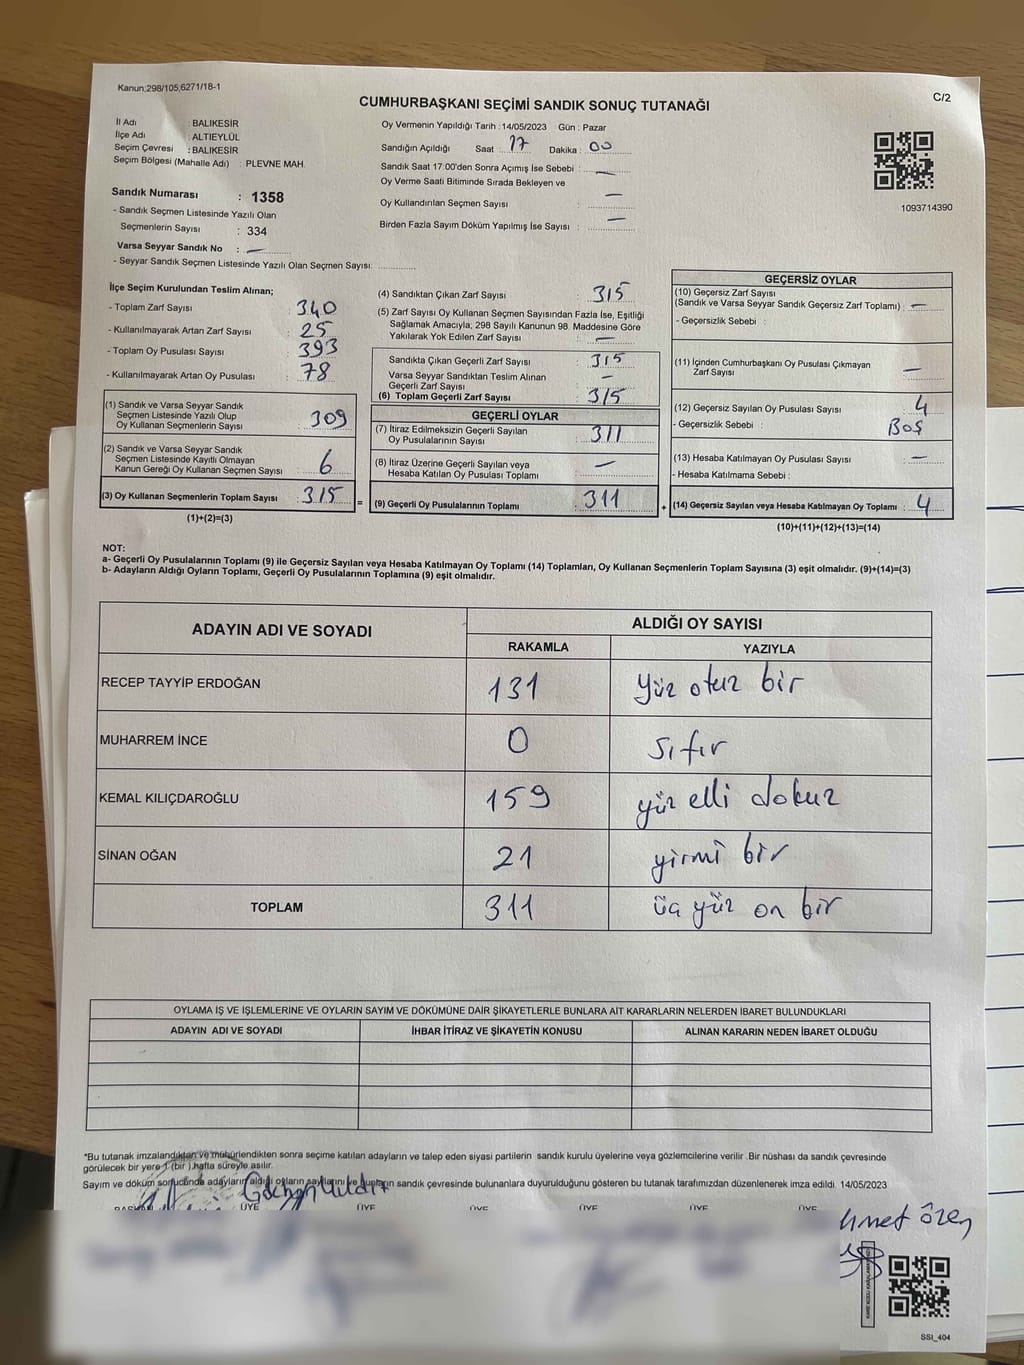 Kanun;298/105,6271/18-1
C/2
CUMHURBAŞKANI SEÇİMİ SANDIK SONUÇ TUTANAĞI
İl Adı : BALIKESİR
İlçe Adı : ALTIEYLÜL
Seçim Çevresi : BALIKESİR
Seçim Bölgesi (Mahalle Adı) : PLEVNE MAH.
Sandık Numarası : 1358
- Sandık Seçmen Listesinde Yazılı Olan
Seçmenlerin Sayısı : 334
Varsa Seyyar Sandık No : —
- Seyyar Sandık Seçmen Listesinde Yazılı Olan Seçmen Sayısı:
Oy Vermenin Yapıldığı Tarih :14/05/2023 Gün : Pazar
Sandığın Açıldığı Saat : 17 Dakika : 00
Sandık Saat 17:00'den Sonra Açımış İse Sebebi : —
Oy Verme Saati Bitiminde Sırada Bekleyen ve
Oy Kullandırılan Seçmen Sayısı : —
Birden Fazla Sayım Döküm Yapılmış İse Sayısı : —
1093714390
İlçe Seçim Kurulundan Teslim Alınan;
- Toplam Zarf Sayısı : 340
- Kullanılmayarak Artan Zarf Sayısı : 25
- Toplam Oy Pusulası Sayısı : 393
- Kullanılmayarak Artan Oy Pusulası : 78
(1) Sandık ve Varsa Seyyar Sandık
Seçmen Listesinde Yazılı Olup
Oy Kullanan Seçmenlerin Sayısı : 309
(2) Sandık ve Varsa Seyyar Sandık
Seçmen Listesinde Kayıtlı Olmayan
Kanun Gereği Oy Kullanan Seçmen Sayısı : 6
(3) Oy Kullanan Seçmenlerin Toplam Sayısı : 315 =
(1)+(2)=(3)
(4) Sandıktan Çıkan Zarf Sayısı : 315
(5) Zarf Sayısı Oy Kullanan Seçmen Sayısından Fazla İse, Eşitliği
Sağlamak Amacıyla; 298 Sayılı Kanunun 98. Maddesine Göre
Yakılarak Yok Edilen Zarf Sayısı : —
Sandıkta Çıkan Geçerli Zarf Sayısı : 315
Varsa Seyyar Sandıktan Teslim Alınan
Geçerli Zarf Sayısı : —
(6) Toplam Geçerli Zarf Sayısı : 315
GEÇERLİ OYLAR
(7) İtiraz Edilmeksizin Geçerli Sayılan
Oy Pusulalarının Sayısı : 311
(8) İtiraz Üzerine Geçerli Sayılan veya
Hesaba Katılan Oy Pusulası Toplamı : —
(9) Geçerli Oy Pusulalarının Toplamı : 311 +
GEÇERSİZ OYLAR
(10) Geçersiz Zarf Sayısı
(Sandık ve Varsa Seyyar Sandık Geçersiz Zarf Toplamı) : —
- Geçersizlik Sebebi :
(11) İçinden Cumhurbaşkanı Oy Pusulası Çıkmayan
Zarf Sayısı : —
(12) Geçersiz Sayılan Oy Pusulası Sayısı : 4
- Geçersizlik Sebebi : BOŞ
(13) Hesaba Katılmayan Oy Pusulası Sayısı : —
- Hesaba Katılmama Sebebi :
(14) Geçersiz Sayılan veya Hesaba Katılmayan Oy Toplamı : 4
(10)+(11)+(12)+(13)=(14)
NOT:
a- Geçerli Oy Pusulalarının Toplamı (9) ile Geçersiz Sayılan veya Hesaba Katılmayan Oy Toplamı (14) Toplamları, Oy Kullanan Seçmenlerin Toplam Sayısına (3) eşit olmalıdır. (9)+(14)=(3)
b- Adayların Aldığı Oyların Toplamı, Geçerli Oy Pusulalarının Toplamına (9) eşit olmalıdır.
ADAYIN ADI VE SOYADI ALDIĞI OY SAYISI
RAKAMLA YAZIYLA
RECEP TAYYİP ERDOĞAN 131 yüz otuz bir
MUHARREM İNCE 0 sıfır
KEMAL KILIÇDAROĞLU 159 yüz elli dokuz
SİNAN OĞAN 21 yirmi bir
TOPLAM 311 üç yüz on bir
OYLAMA İŞ VE İŞLEMLERİNE VE OYLARIN SAYIM VE DÖKÜMÜNE DAİR ŞİKAYETLERLE BUNLARA AİT KARARLARIN NELERDEN İBARET BULUNDUKLARI
ADAYIN ADI VE SOYADI İHBAR İTİRAZ VE ŞİKAYETİN KONUSU ALINAN KARARIN NEDEN İBARET OLDUĞU
*Bu tutanak imzalandıktan ve mühürlendikten sonra seçime katılan adayların ve talep eden siyasi partilerin sandık kurulu üyelerine veya gözlemcilerine verilir .Bir nüshası da sandık çevresinde
görülecek bir yere 1 (bir ) hafta süreyle asılır.
Sayım ve döküm sonucunda adayların aldığı oyların sayılarını ve bunların sandık çevresinde bulunanlara duyurulduğunu gösteren bu tutanak tarafımızdan düzenlenerek imza edildi. 14/05/2023
Gökhan Yıldız
BAŞKAN ÜYE ÜYE ÜYE ÜYE ÜYE ÜYE
hmet özen
SSI_404